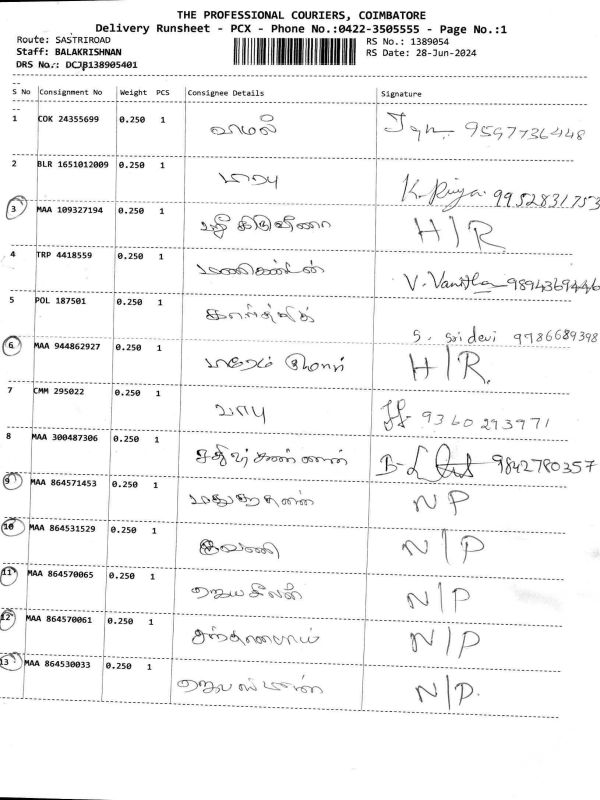 THE PROFESSIONAL COURIERS, COIMBATORE
Delivery Runsheet - PCX - Phone No.:0422-3505555 - Page No.:1
Route: SASTRIROAD RS No.: 1389054
Staff: BALAKRISHNAN RS Date: 28-Jun-2024
DRS No.: DCJB138905401
S No Consignment No Weight PCS Consignee Details Signature
1 COK 24355699 0.250 1 9597736448
2 BLR 1651012009 0.250 1 பாபு K. Priya. 9952831753
3 MAA 109327194 0.250 1 H/R
4 TRP 4418559 0.250 1 மணிகண்டன் V. Vanitha 9894369446
5 POL 187501 0.250 1 கார்த்திக் S. Sridevi 9786689398
6 MAA 944862927 0.250 1 H/R.
7 CMM 295022 0.250 1 பாபு 9360293971
8 MAA 300487306 0.250 1 கண்ணன் 9842780357
9 MAA 864571453 0.250 1 NP
10 MAA 864531529 0.250 1 N/P
11 MAA 864570065 0.250 1 N/P
12 MAA 864570061 0.250 1 N/P
13 MAA 864530033 0.250 1 N/P.